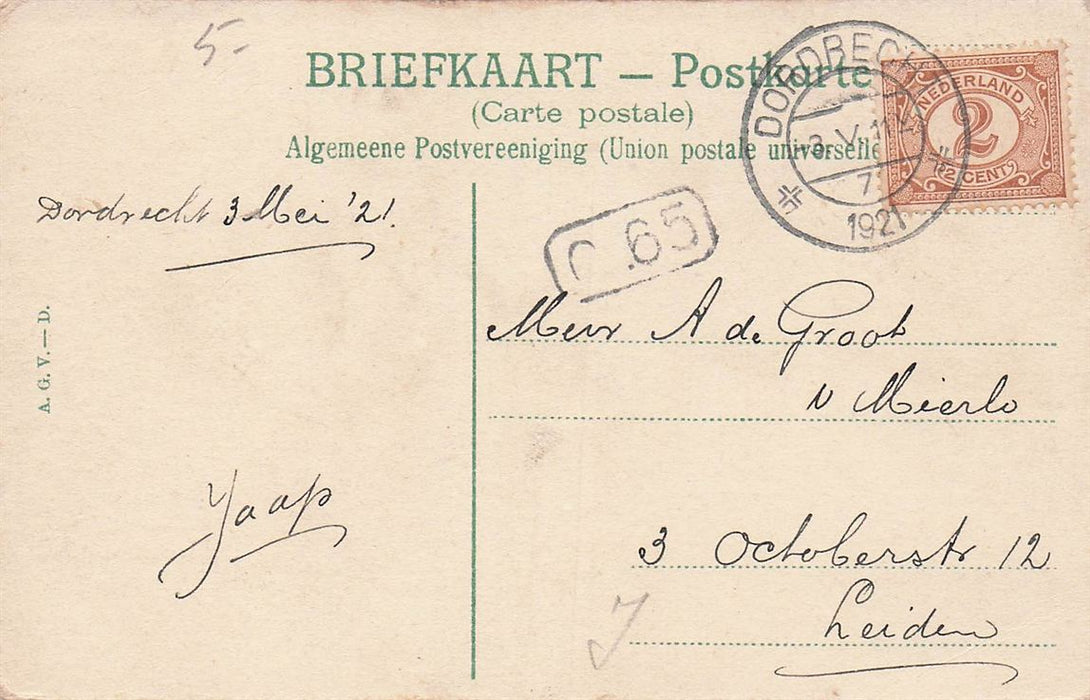 5-
BRIEFKAART — Postkarte
(Carte postale)
Algemeene Postvereeniging (Union postale universelle
DORDRECHT
3.V.11
7
1921
NEDERLAND
2
(2 CENT)
Dordrecht 3 Mei '21.
.65
A. G. V.—D.
Mevr A de Groot
v Mierlo
Jaap
3 Octoberstr 12
Leiden